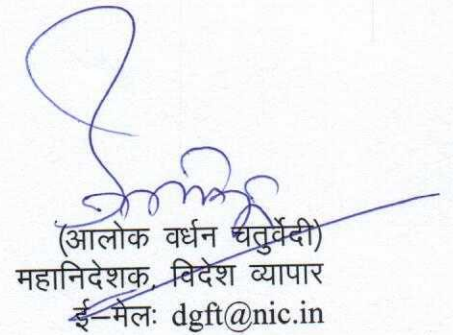 (आलोक वर्धन चतुर्वेदी)
महानिदेशक, विदेश व्यापार
ई–मेलः dgft@nic.in